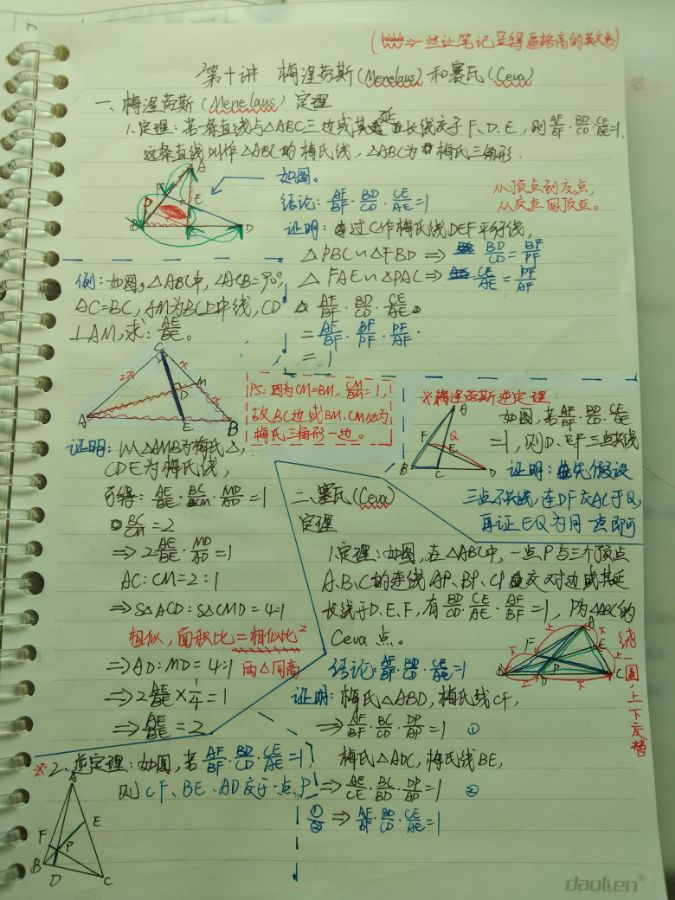 (⇒一些让笔记显得逼格高的英文名)
第十讲 梅涅劳斯(Menelaus)和塞瓦(Ceva)
一、梅涅劳斯(Menelaus)定理
1.定理:若一条直线与△ABC三边或其延长线交于F、D、E,则AF/BF·BD/CD·CE/AE=1,
这条直线叫作△ABC的梅氏线,△ABC为梅氏三角形.
如图。
结论:AF/BF·BD/CD·CE/AE=1
从顶点到交点,
从交点回顶点。
证明:过C作梅氏线DEF平行线,
△PBC∽△FBD⇒BD/CD=BF/PF
△FAE∽△PAC⇒CE/AE=PF/AF
AF/BF·BD/CD·CE/AE
=AF/BF·BF/PF·PF/AF
=1
A
P
F
E
B
C
D
例:如图,△ABC中,∠ACB=90°,
AC=BC,AM为BC上中线,CD
⊥AM,求:AE/BE。
C
2x
x
M
D
x
A
E
B
PS:因为CM=BM,CM/BM=1,
故BC边或BM、CM边为
梅氏三角形一边。
证明:以△AMB为梅氏△,
CDE为梅氏线,
可得:AE/BE·BC/CM·MD/AD=1
BC/CM=2
⇒2AE/BE·MD/AD=1
AC:CM=2:1
⇒S△ACD:S△CMD=4:1
相似,面积比=相似比²
⇒AD:MD=4:1 两△同高
⇒2AE/BE×1/4=1
⇒AE/BE=2
※梅涅劳斯逆定理:
如图,若AF/BF·BD/CD·CE/AE
=1,则D、E、F三点共线
证明:先假设
三点不共线,连DF交AC于Q,
再证E、Q为同一点即可
A
F
Q
E
B
C
D
二、塞瓦(Ceva)
定理
1.定理:如图,在△ABC中,一点P与三个顶点
A、B、C的连线AP、BP、CP交对边或其延
长线于D、E、F,有BD/CD·CE/AE·AF/BF=1,P为△ABC的
Ceva点。
结论:AF/BF·BD/CD·CE/AE=1
绕一圈,上下交替
A
B
P
D
C
证明:梅氏△ABD,梅氏线CF,
⇒AF/BF·BC/CD·DP/AP=1 ①
梅氏△ADC,梅氏线BE,
⇒AE/CE·BC/BD·DP/AP=1 ②
①/②⇒AF/BF·BD/CD·CE/AE=1
※2、逆定理:如图,若AF/BF·BD/CD·CE/AE=1,
则CF、BE、AD交于一点P
A
F
E
P
B
D
C
daolien